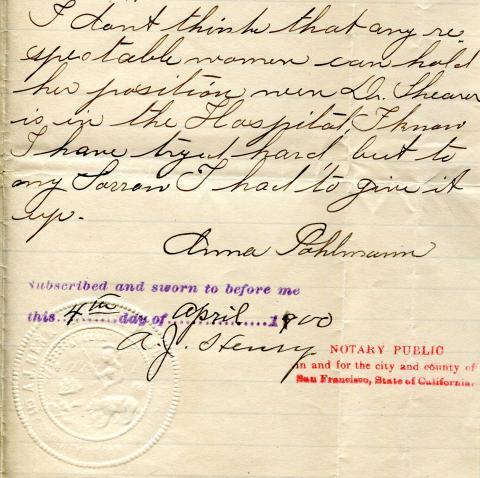 I dont thinke that any re-
spectable women can hold
her position wen Dr. Shearer
is in the Hospital, I know
I have tryed hard but to
my Sorrow I had to give it
up.
Anna Pohlmann
Subscribed and sworn to before me
this 4th day of April 1900
A. J. Henry
NOTARY PUBLIC
in and for the city and county of
San Francisco, State of California.